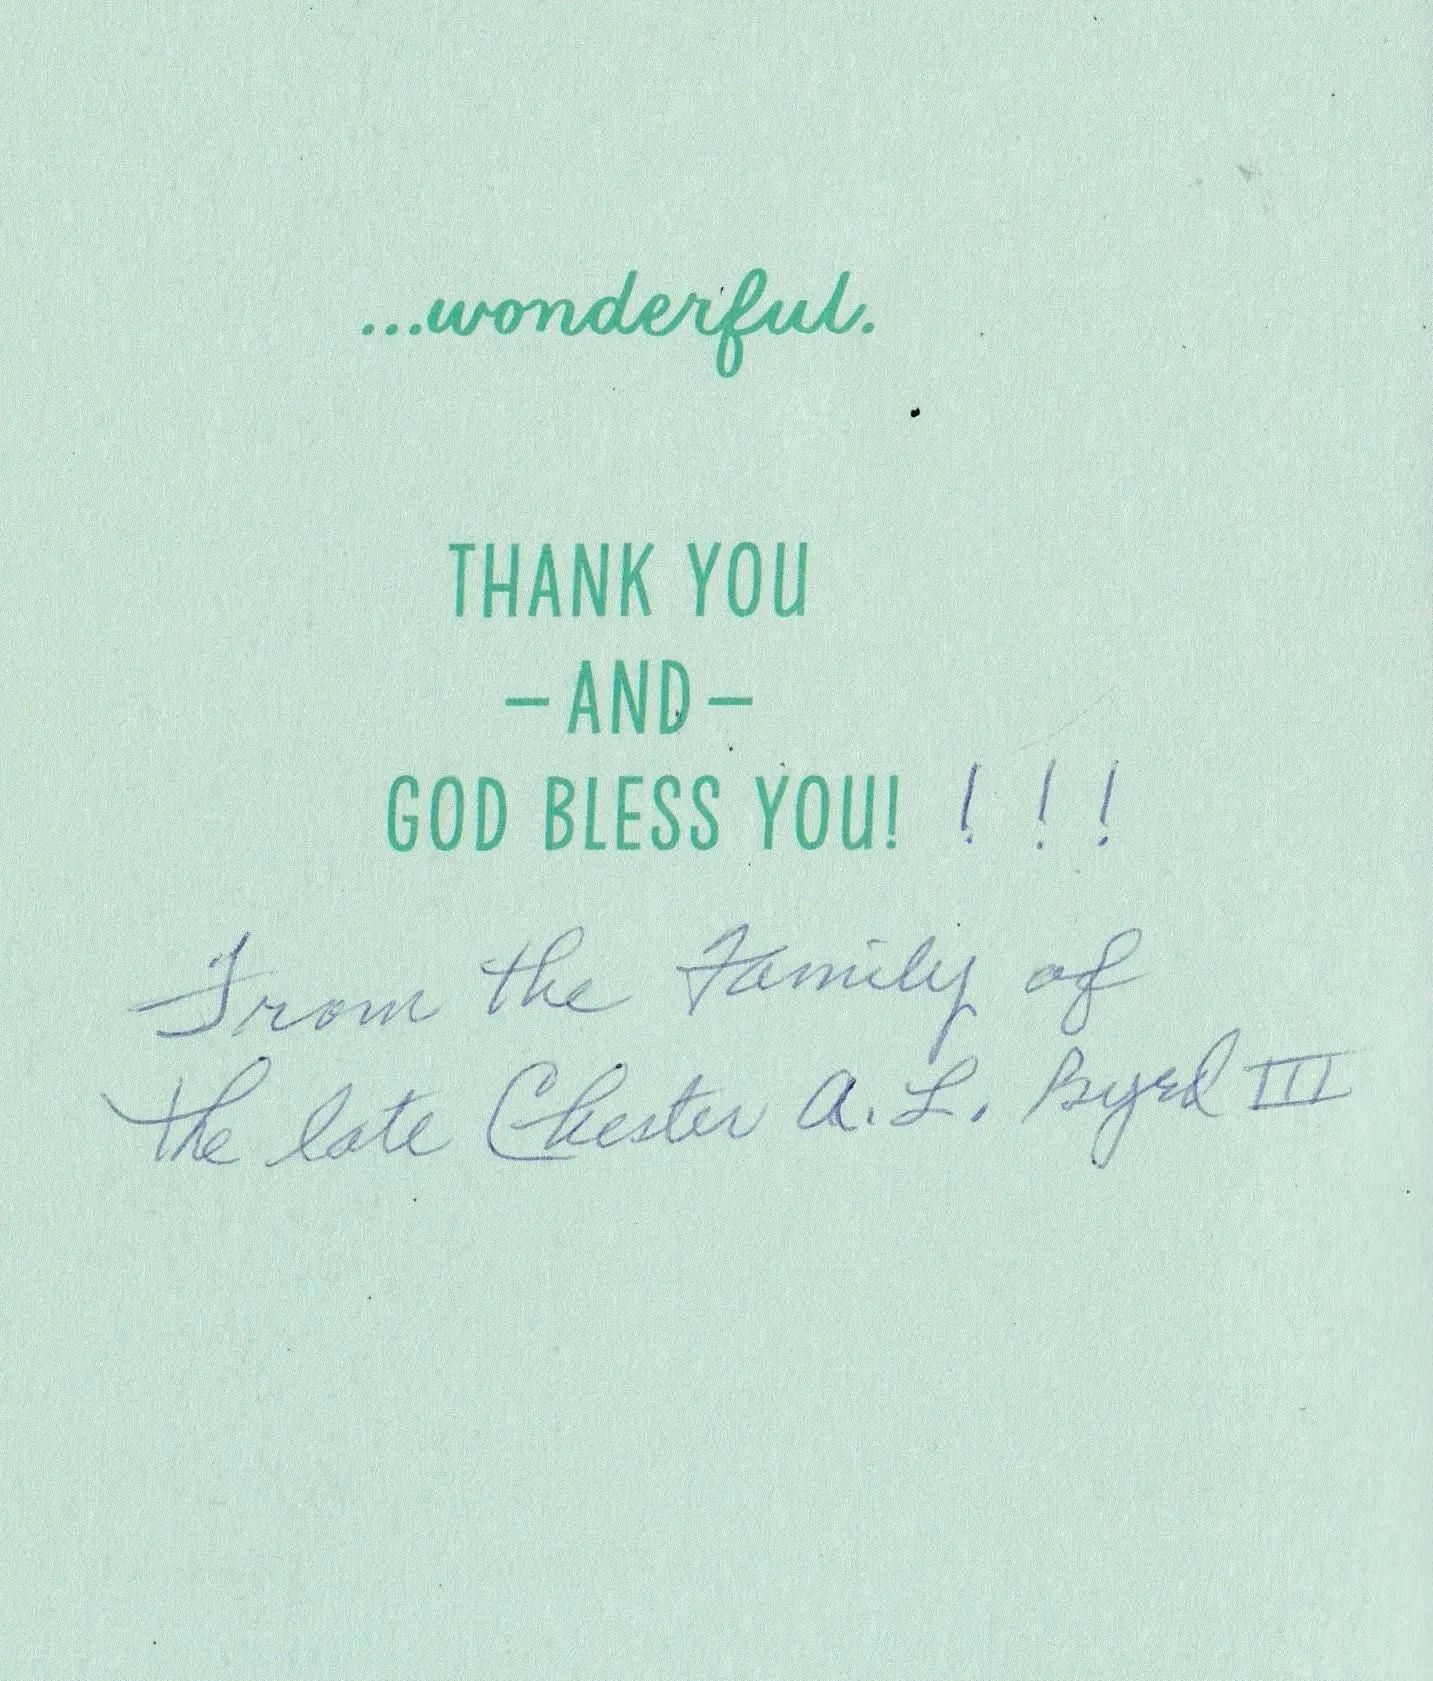 ...wonderful.
THANK YOU
– AND –
GOD BLESS YOU! ! ! !
From the Family of
the late Chester A. L. Byrd III